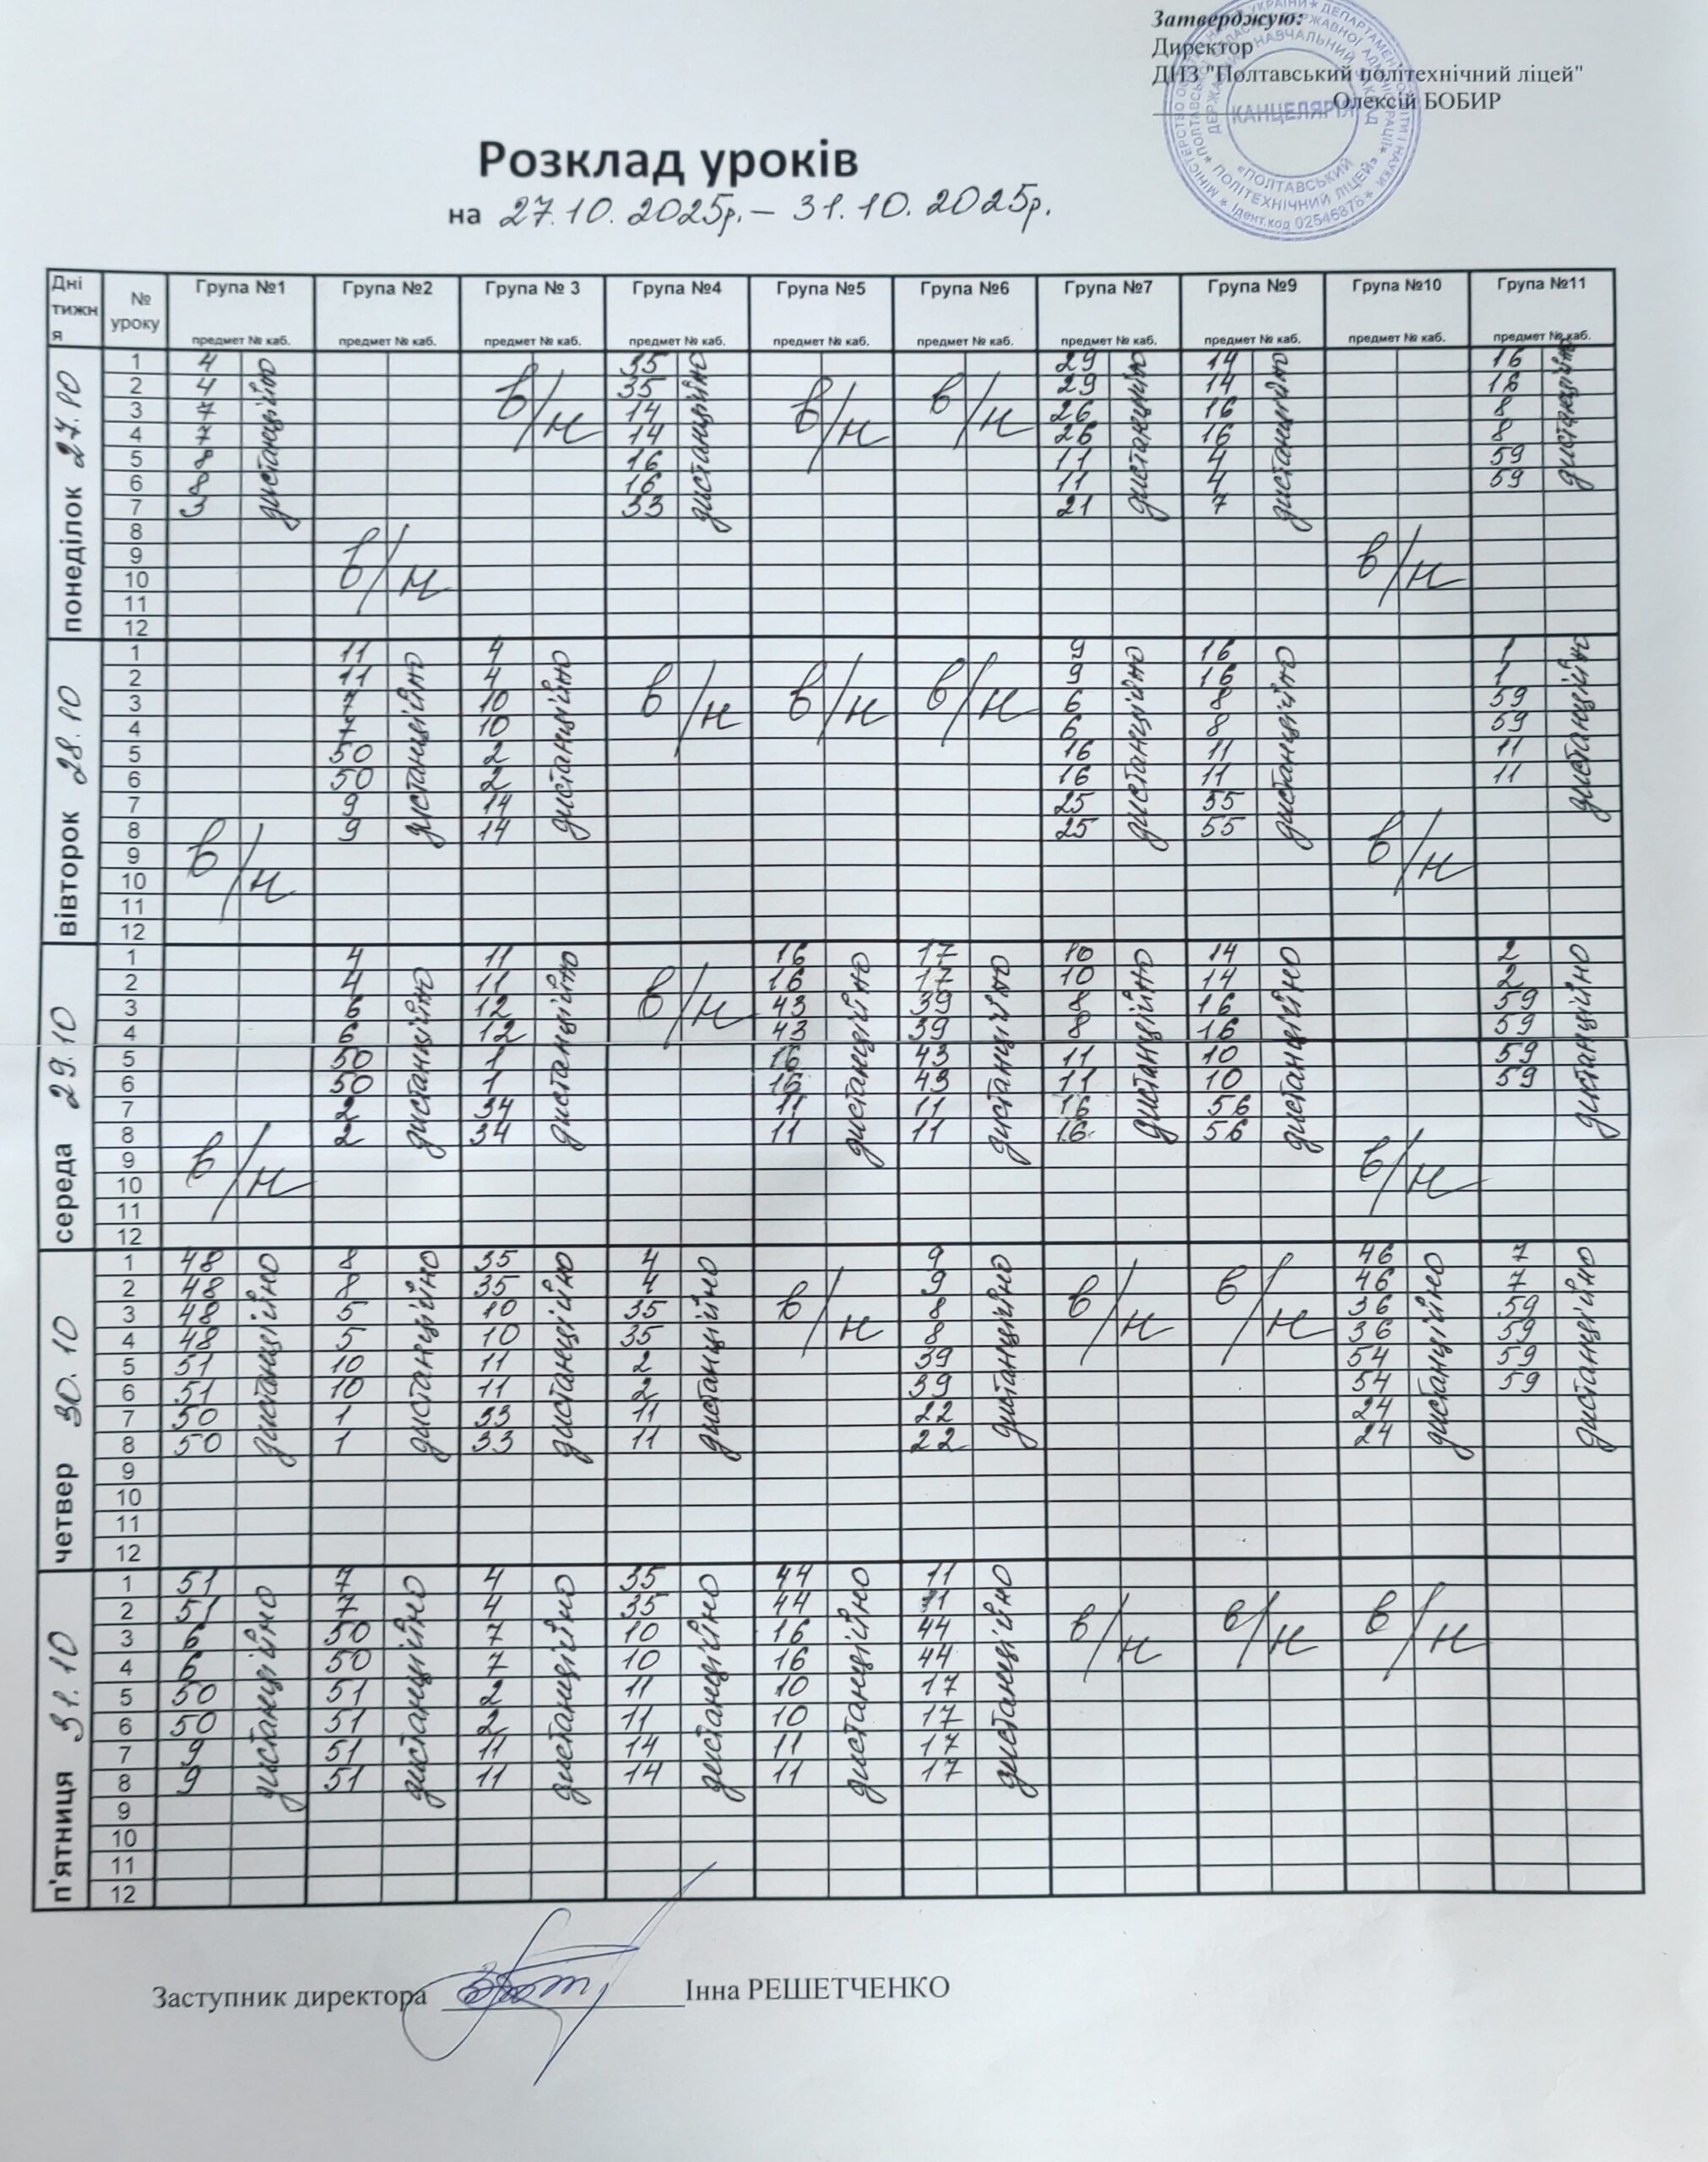 Затверджую:
Директор
ДНЗ "Полтавський політехнічний ліцей"
Олексій БОБИР
КАНЦЕЛЯРІЯ
«ПОЛТАВСЬКИЙ
ПОЛІТЕХНІЧНИЙ ЛІЦЕЙ»
Розклад уроків
на 27.10.2025р. – 31.10.2025р.
Дні тижня № уроку Група №1 Група №2 Група № 3 Група №4 Група №5 Група №6 Група №7 Група №9 Група №10 Група №11
предмет № каб. предмет № каб. предмет № каб. предмет № каб. предмет № каб. предмет № каб. предмет № каб. предмет № каб. предмет № каб. предмет № каб.
понеділок 27.10
1 4 35 29 14 16
2 4 35 29 14 16
3 7 14 26 16 8
4 7 14 26 16 8
5 8 16 11 4 59
6 8 16 11 4 59
7 3 33 21 7
8
9
10
11
12
дистанційно в/н в/н дистанційно в/н в/н дистанційно дистанційно в/н дистанційно
вівторок 28.10
1 11 4 9 16 1
2 11 4 9 16 1
3 7 10 6 8 59
4 7 10 6 8 59
5 50 2 16 11 11
6 50 2 16 11 11
7 9 14 25 55
8 9 14 25 55
9
10
11
12
в/н дистанційно дистанційно в/н в/н в/н дистанційно дистанційно в/н дистанційно
середа 29.10
1 4 11 16 17 10 14 2
2 4 11 16 17 10 14 2
3 6 12 43 39 8 16 59
4 6 12 43 39 8 16 59
5 50 1 16 43 11 10 59
6 50 1 16 43 11 10 59
7 2 34 11 11 16 56
8 2 34 11 11 16 56
9
10
11
12
в/н дистанційно дистанційно в/н дистанційно дистанційно дистанційно дистанційно в/н дистанційно
четвер 30.10
1 48 8 35 4 9 46 7
2 48 8 35 4 9 46 7
3 48 5 10 35 8 36 59
4 48 5 10 35 8 36 59
5 51 10 11 2 39 54 59
6 51 10 11 2 39 54 59
7 50 1 33 11 22 24
8 50 1 33 11 22 24
9
10
11
12
дистанційно дистанційно дистанційно дистанційно в/н дистанційно в/н в/н дистанційно дистанційно
п'ятниця 31.10
1 51 7 4 35 44 11
2 51 7 4 35 44 11
3 6 50 7 10 16 44
4 6 50 7 10 16 44
5 50 51 2 11 10 17
6 50 51 2 11 10 17
7 9 51 11 14 11 17
8 9 51 11 14 11 17
9
10
11
12
дистанційно дистанційно дистанційно дистанційно дистанційно дистанційно в/н в/н в/н
Заступник директора Інна РЕШЕТЧЕНКО